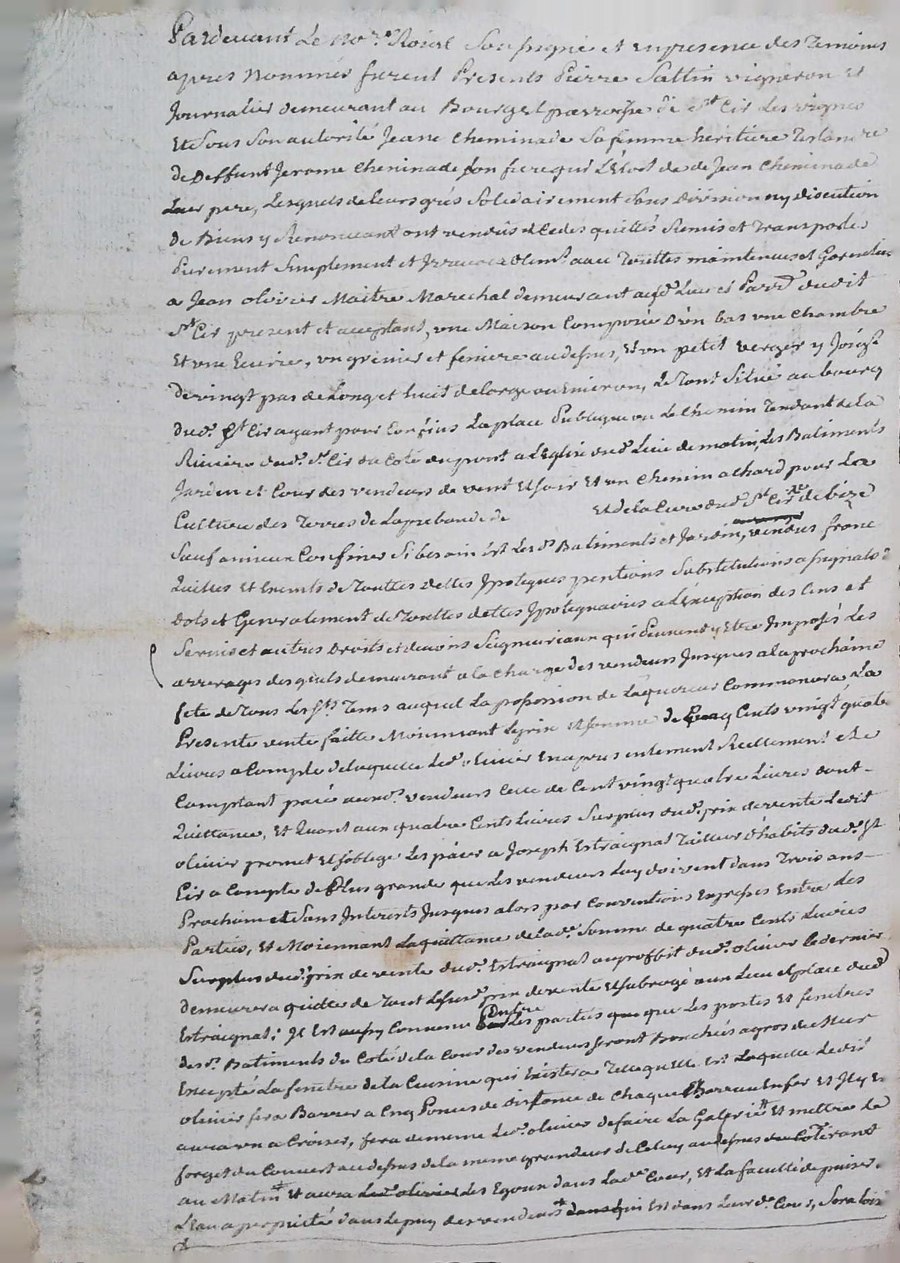 Pardevant Le No.re Roial Soussigné et en presence des Temoins
apres Nommés furent Presents Pierre Sattin vigneron et
Journalier demeurant au Bourg et parroisse de St Cir Les vignes
Et sous Son autorité Jeane Cheminade Sa femme heritiere
de deffunt Jerome Cheminade Son frere qui L'Etoit de Jean Cheminade
Leur pere, Lesquels de Leurs grés Solidairement Sans division ny discution
de Biens y Renonceant ont vendus Cedes quittés Remis et Transportés
Purement Simplement et Irrevocablem.t avec Touttes maintenues et Garenties
a Jean olivier Maitre Marechal demeurant aud. Lieu et Parr.e dudit
St Cir present et acceptant, une Maison Composée D'un bas une Chambre
Et une Ecurie, un grenier et feniere au dessus, Et un petit verger y Joignt
de vingt pas de Long et huit de Large ou Environ, Le Tout Situé au bourg
dud. St Cir ayant pour Confins La place Publique ou Le Chemin Tendant de La
Riviere dud. St Cir du Coté du pont a L'Eglise dud. Lieu de matin, Les Batiments
Jardin et Cour des vendeurs de vent Et soir Et un Chemin a Chard pour La
Culture des Terres de La prebande de Et de la Cure dud. St Cir de bize
Sauf a mieux Confiner Si besoin est Les d. Batiments et Jardin, vendus franc
Quittes Et Exemts de Touttes dettes Ipoteques pentions Substitutions
dots et Generalement de Touttes dettes Ipotequaires a L'Exception des Cens et
Servis et autres Droits et devoirs Seigneuriaux qui Peuvent y Etre Imposés Les
arrerages des quels demeurant a la Charge des vendeurs Jusques a la prochaine
fete de Tous Les Sts Tems auquel La possession de L'aquereur Commencera La
Presente vente faitte Moiennant Le prix Et somme de Cinq Cents vingt quatre
Livres a Compte de laquelle Led. olivier En a presentement Reellement et
Comptant paié auxd. vendeurs Celle de Cent vingt quatre Livres dont
Quittance, Et Quant aux quatre Cents Livres Surplus dud. prix de vente Ledit
olivier promet Et s'oblige Les paier a Joseph Estraignat Tailleur d'habits dud. St
Cir a Compte de Plus grande que Les vendeurs Luy doivent dans Trois ans
Prochain et Sans Interets Jusques alors par Conventions Expresses Entre Les
Parties, Et Moiennant La quittance de Lad. Somme de quatre Cents Livres
Surplus dud. prix de vente dud. Estraignat au proffit dud. olivier Ce dernier
demeurera quitte de Tout Led. prix de vente Et subrogé aux Lieu et place dud
Estraignat; Il Est aussy Convenu Entre Les parties que Les portes Et fenetres
desd. Batiments du Coté de la Cour des vendeurs Seront Bouchées a gros de Mur
Excepté La fenetre de la Cuisine qui Existera Telle quelle Est Laquelle Ledit
olivier fera Barrer a Cinq Pouces de distance de Chaque Barreau En fer Et Il y En
aura un a Croiser, fera de meme Led. olivier defaire La Galerie Et mettre Le
forget du Couvert au dessus de la meme grandeur de Celuy au dessus du Coté Tirant
au Matin Et aura Led. olivier Les Egoux dans Lad. Cour, Et La faculté de puiser
L'Eau a perpetité dans Le puy des vendeurs qui Est dans Leur d. Cour, Sera